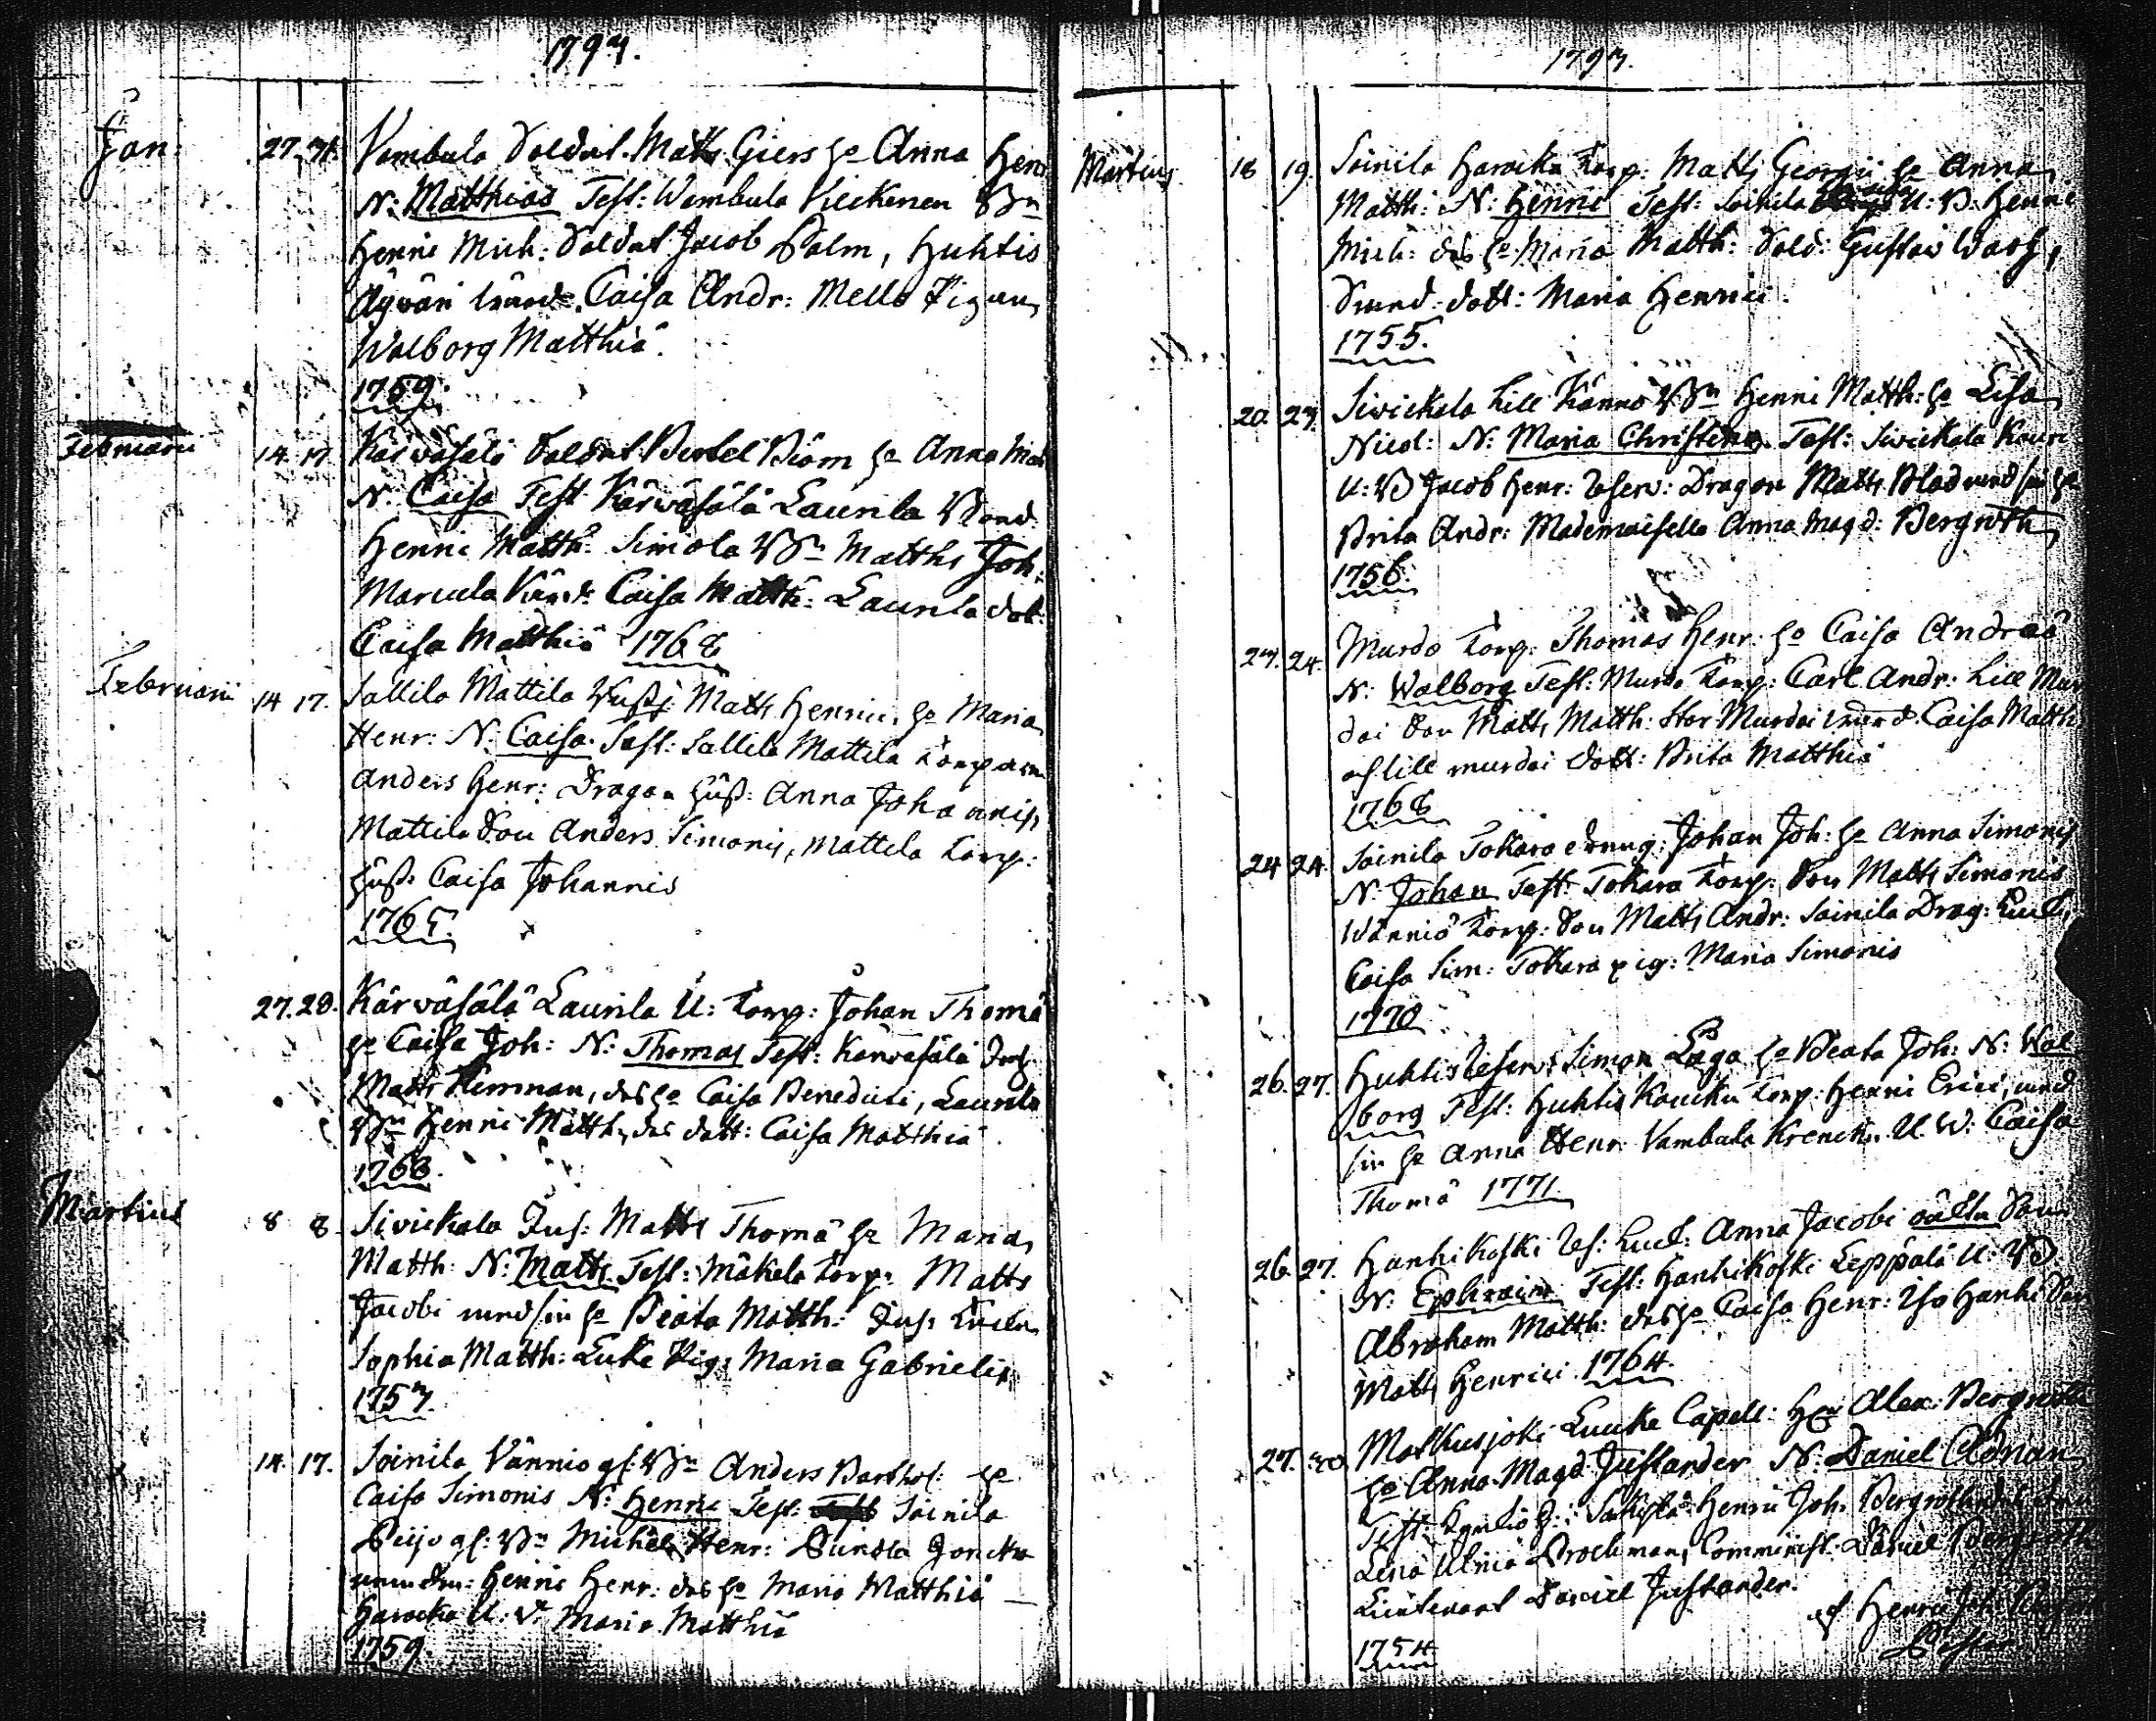 1793.
Jan: 27. 31. Vambula Soldat. Matts Giers h:o Anna Henr
N: Matthias Test: Wambula Kieckenen Bn
Henric Mich: Soldat Jacob Palm, Huhtis
Äyväri Caisa Andr: Mello Pigan
Walborg Matthiä.
1759.
Februarii 14. 17. Kärväsälä Soldat Bertel Biöm h:o Anna Mat
N. Caisa Test Kärväsälä Laurila Bond
Henric Matth: Simola Bn Matths Joh:
Marcula Caisa Matth: Laurila dot:
Caisa Matthiä 1768
Februarii 14 17. Sallila Mattila Matts Henrici, h:o Maria
Henr: N: Caisa. Test: Sallila Mattila Torparen
Anders Henr: Dragon hust: Anna Johannis
Mattila Son Anders Simonis, Mattila Torp:
hust: Caisa Johannis
1765.
27. 28. Kärväsälä Laurila U: Torp: Johan Thomä
h:o Caisa Joh: N: Thomas Test: Kärväsälä
Matts Kimman, des h:o Caisa Benedicti, Laurila
Bn Henric Matth, des dott: Caisa Matthiä.
1763.
Martius 8 8. Sivickala Inh: Matts Thomä h:o Maria
Matth: N: Matts. Test: Mäkelä Torp: Matts
Jacobi med sin h:o Beata Matth: Inh:
Sophia Matth: Luke Pig: Maria Gabrielis
1757.
14. 17. Soinila Vänniö gl: Bn Anders Barthol: h:o
Caisa Simonis N: Henric Test: Soinila
Peijo gl: Bn Michel Henr:
Henric Henr: des h:o Maria Matthiä
Haracka U: V: Maria Matthiä
1759.
1793.
Martius 18 19. Soinila Haracka Torp: Matts Georgii h:o Anna
Matth: N: Henric Test: Soinila U: B: Henric
Mich: des h:o Maria Matth: Sold: Gustav
dott: Maria Henrici.
1755.
20. 23. Sivickala Lill Kännö Bn Henric Matth: h:o Lisa
Nicol: N: Maria Christina. Test: Sivickala
U: B Jacob Henr: Reserv: Dragon Matts Blad med sin h:o
Brita Andr: Mademoiselle Anna Magd: Bergroth
1756.
23. 24. Murdo Torp: Thomas Henr: h:o Caisa Andreä
N: Walborg Test: Murdo Torp: Carl Andr: Lill Mur
doi Son Matts Matth: Stor Murdoi Caisa Matth
och lill murdoi Dott: Brita Matthiä
1768
24 24. Soinila Tokara Johan Joh: h:o Anna Simonis
N: Johan Test: Tokara Torp: Son Matts Simonis
Wänniö Torp: Son Matts Andr: Soinila Drag:
Caisa Sim: Tokara pig: Maria Simonis
1770
26. 27. Huhtis Reserv: Simon Läga h:o Beata Joh: N: Wal
borg Test: Huhtis Kaucku Torp: Henric Erici, med
sin h:o Anna Henr: Vambula U: W: Caisa
Thomä 1771.
26. 27. Hanhikoski Anna Jacobi oäkta Son
N: Ephraim Test: Hanhikoski Leppälä U: B.
Abraham Matth: des h:o Caisa Henr: Iso Hanhi Son
Matts Henrici 1764.
27. 30. Matkusjoki Luuke Capell: H:r Alex: Bergroth
h:o Anna Magd: Justander N: Daniel Adrian
Test: Henric Joh: Bergroth
Lena Ulrica Brochman, Comminist: Daniel Bergroth
Lieutenant Daniel Justander.
1754
af Henric Joh: Bergroth